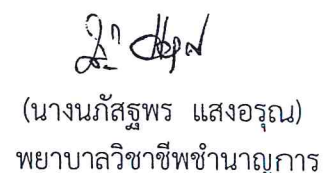 (นางนภัสฐพร แสงอรุณ)
พยาบาลวิชาชีพชำนาญการ